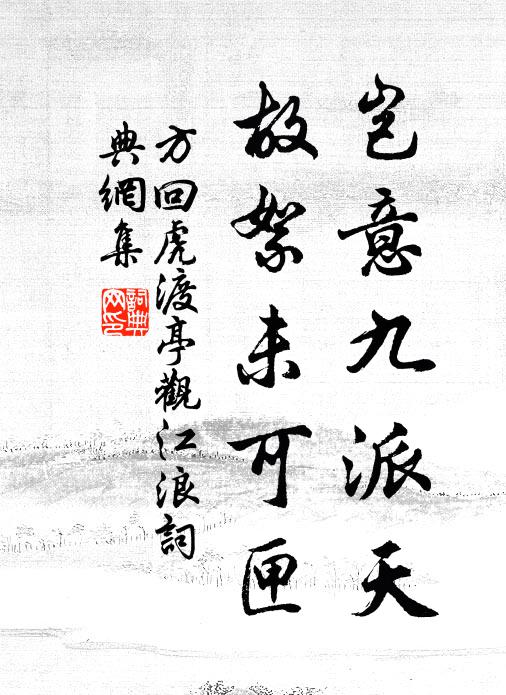 岂意九派天
故絮未可匣
方回虎渡亭觀江浪詞
典網集
詞典網印